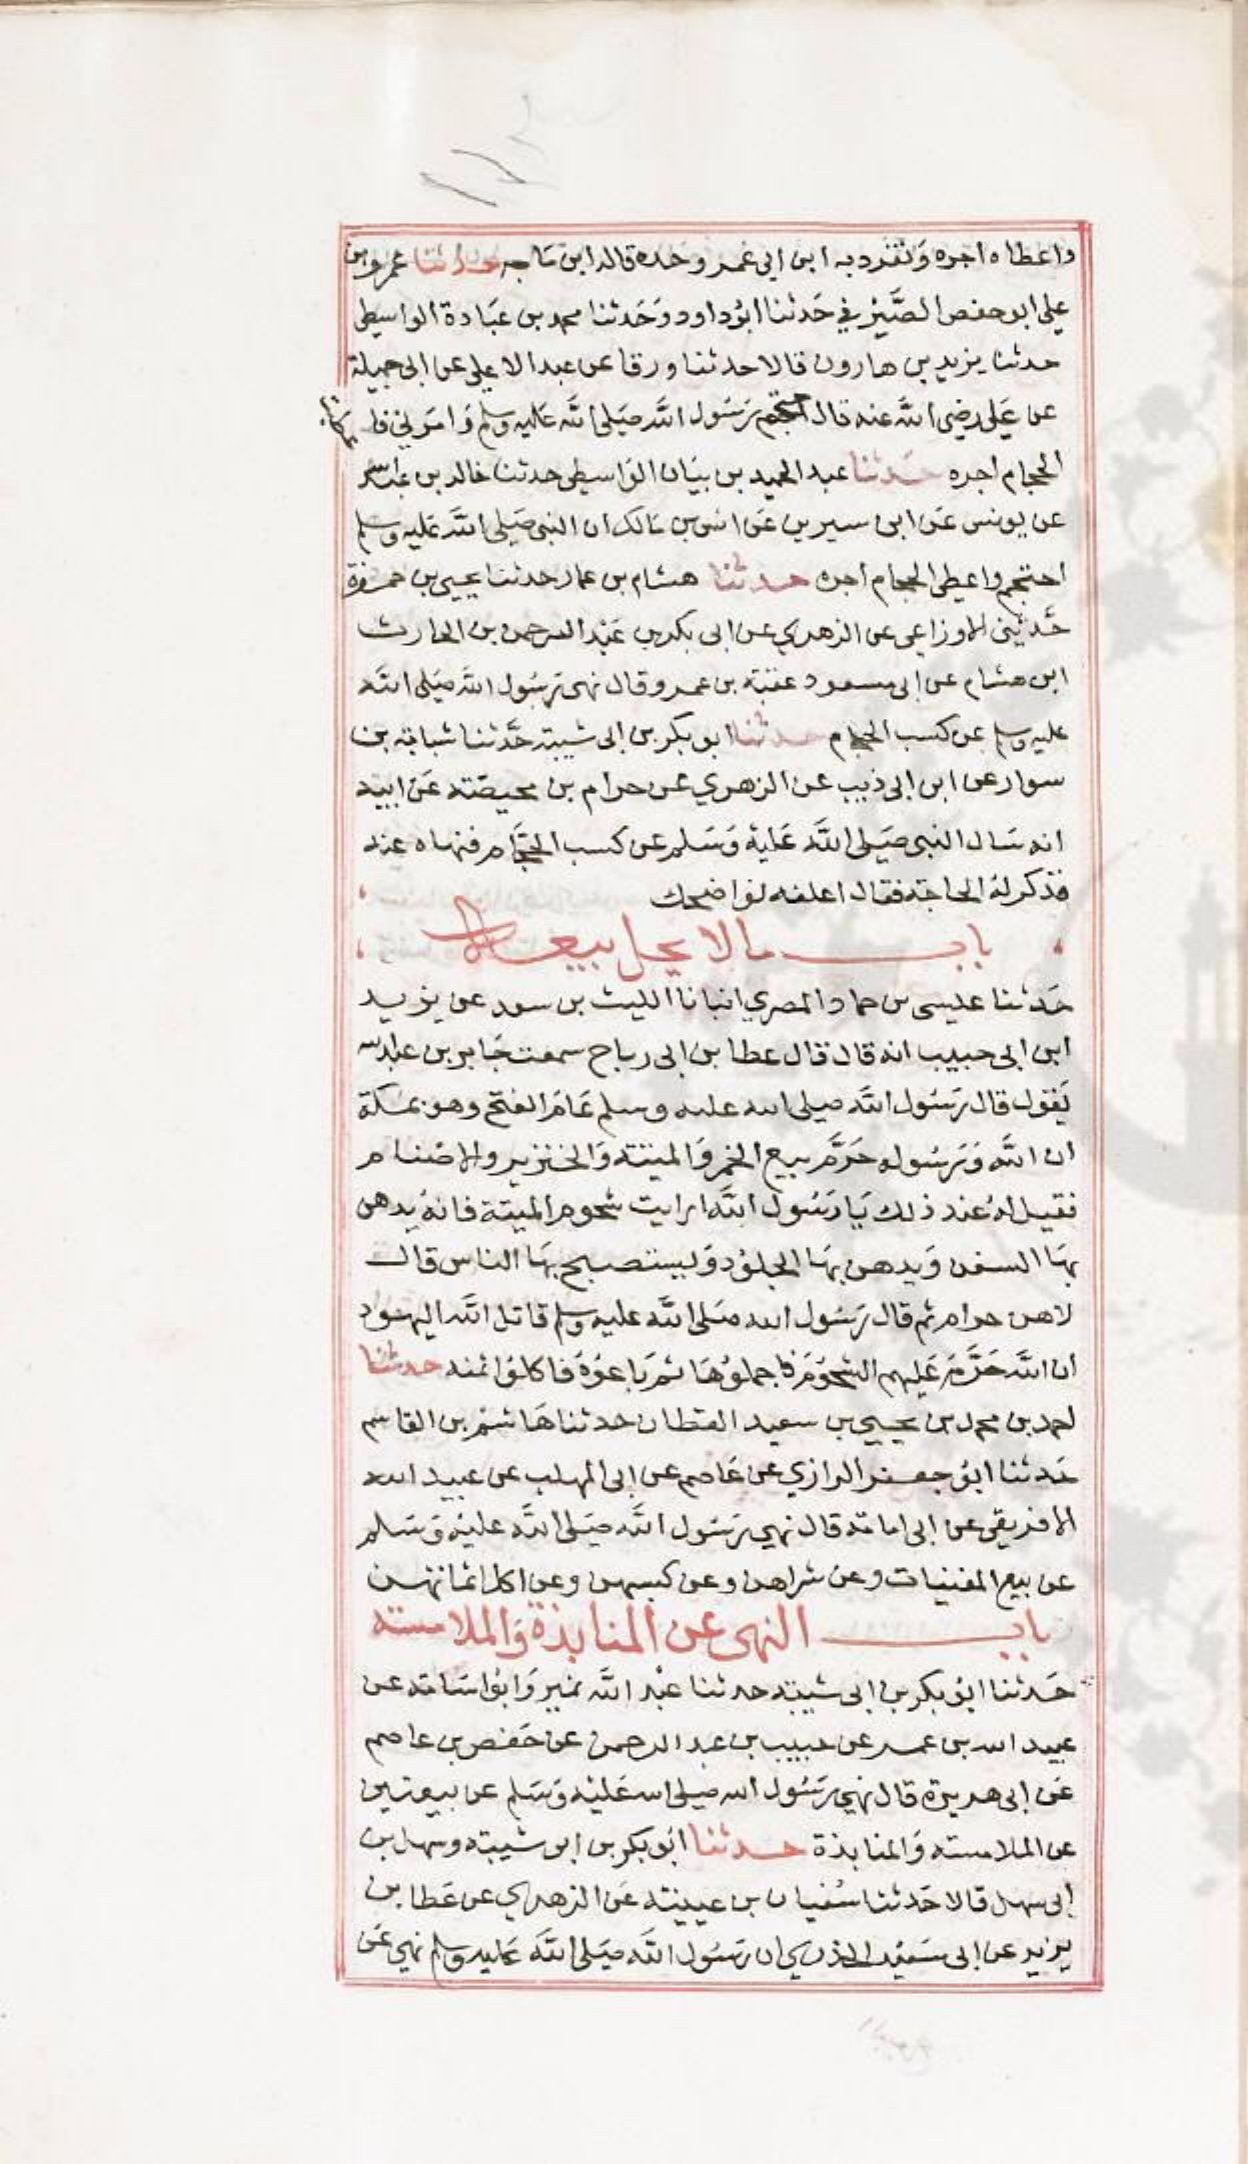 واعطاه اجره وتفرد به ابن ابي عمر وحده قاله ابن ماجه حدثنا عمرو بن
علي ابو حفص الصيرفي حدثنا ابو داود وحدثنا محمد بن عبادة الواسطي
حدثنا يزيد بن هارون قالا حدثنا ورقا عن عبد الاعلى عن ابي جميلة
عن علي رضي الله عنه قال احتجم رسول الله صلى الله عليه وسلم وامرني فا عطيت
الحجام اجره حدثنا عبد الحميد بن بيان الواسطي حدثنا خالد بن عبد الله
عن يونس عن ابن سيرين عن انس بن مالك ان النبي صلى الله عليه وسلم
احتجم واعطى الحجام اجره حدثنا هشام بن عمار حدثنا يحيى بن حمزة
حدثني الاوزاعي عن الزهري عن ابى بكر بن عبد الرحمن بن الحارث
ابن هشام عن ابى مسعود عقبة بن عمرو قال نهى رسول الله صلى الله
عليه وسلم عن كسب الحجام حدثنا ابو بكر بن ابى شيبة حدثنا شبابة بن
سوار عن ابن ابى ذيب عن الزهري عن حرام بن محيصته عن ابيه
انه سال النبي صلى الله عليه وسلم عن كسب الحجام فنهاه عنه
فذكر له الحاجة فقال اعلفه لنواضحك
باب ما لا يحل بيعه
حدثنا عليسى بن حماد المصري انبانا الليث بن سعد عن يزيد
ابن ابى حبيب انه قال قال عطا بن ابى رباح سمعت جابر بن عبد الله
يقول قال رسول الله صلى الله عليه وسلم عام الفتح وهو بمكة
ان الله ورسوله حرم بيع الخمر والميتة والخنزير والاصنام
فقيل له عند ذلك يا رسول الله ارايت شحوم الميتة فانه يدهن
بها السفن ويدهن بها الجلود وليستصبح بها الناس قال
لاهن حرام ثم قال رسول الله صلى الله عليه وسلم قاتل الله اليهود
ان الله حرم عليهم الشحوم فاجملوها ثم باعوه فاكلوا ثمنه حدثنا
احمد بن محمد بن يحيى بن سعيد القطان حدثنا هاشم بن القاسم
حدثنا ابو جعفر الرازي عن عاصم عن ابى المهلب عن عبيد الله
الافريقى عن ابى امامة قال نهى رسول الله صلى الله عليه وسلم
عن بيع المغنيات وعن شراهن وعن كسبهن وعن اكل اثمانهن
باب النهى عن المنابذة والملامسته
حدثنا ابو بكر بن ابى شيبته حدثنا عبد الله نمير وابو اسامة عن
عبيد الله بن عمر عن حبيب بن عبد الرحمن عن حفص بن عاصم
عن ابى هريرة قال نهى رسول الله صلى الله عليه وسلم عن بيعتين
عن الملامسته والمنابذة حدثنا ابو بكر بن ابى شيبته وسهل بن
ابى سهل قالا حدثنا سفيان بن عيينته عن الزهري عن عطا بن
يزيد عن ابى سعيد الخدري ان رسول الله صلى الله عليه وسلم نهى عن